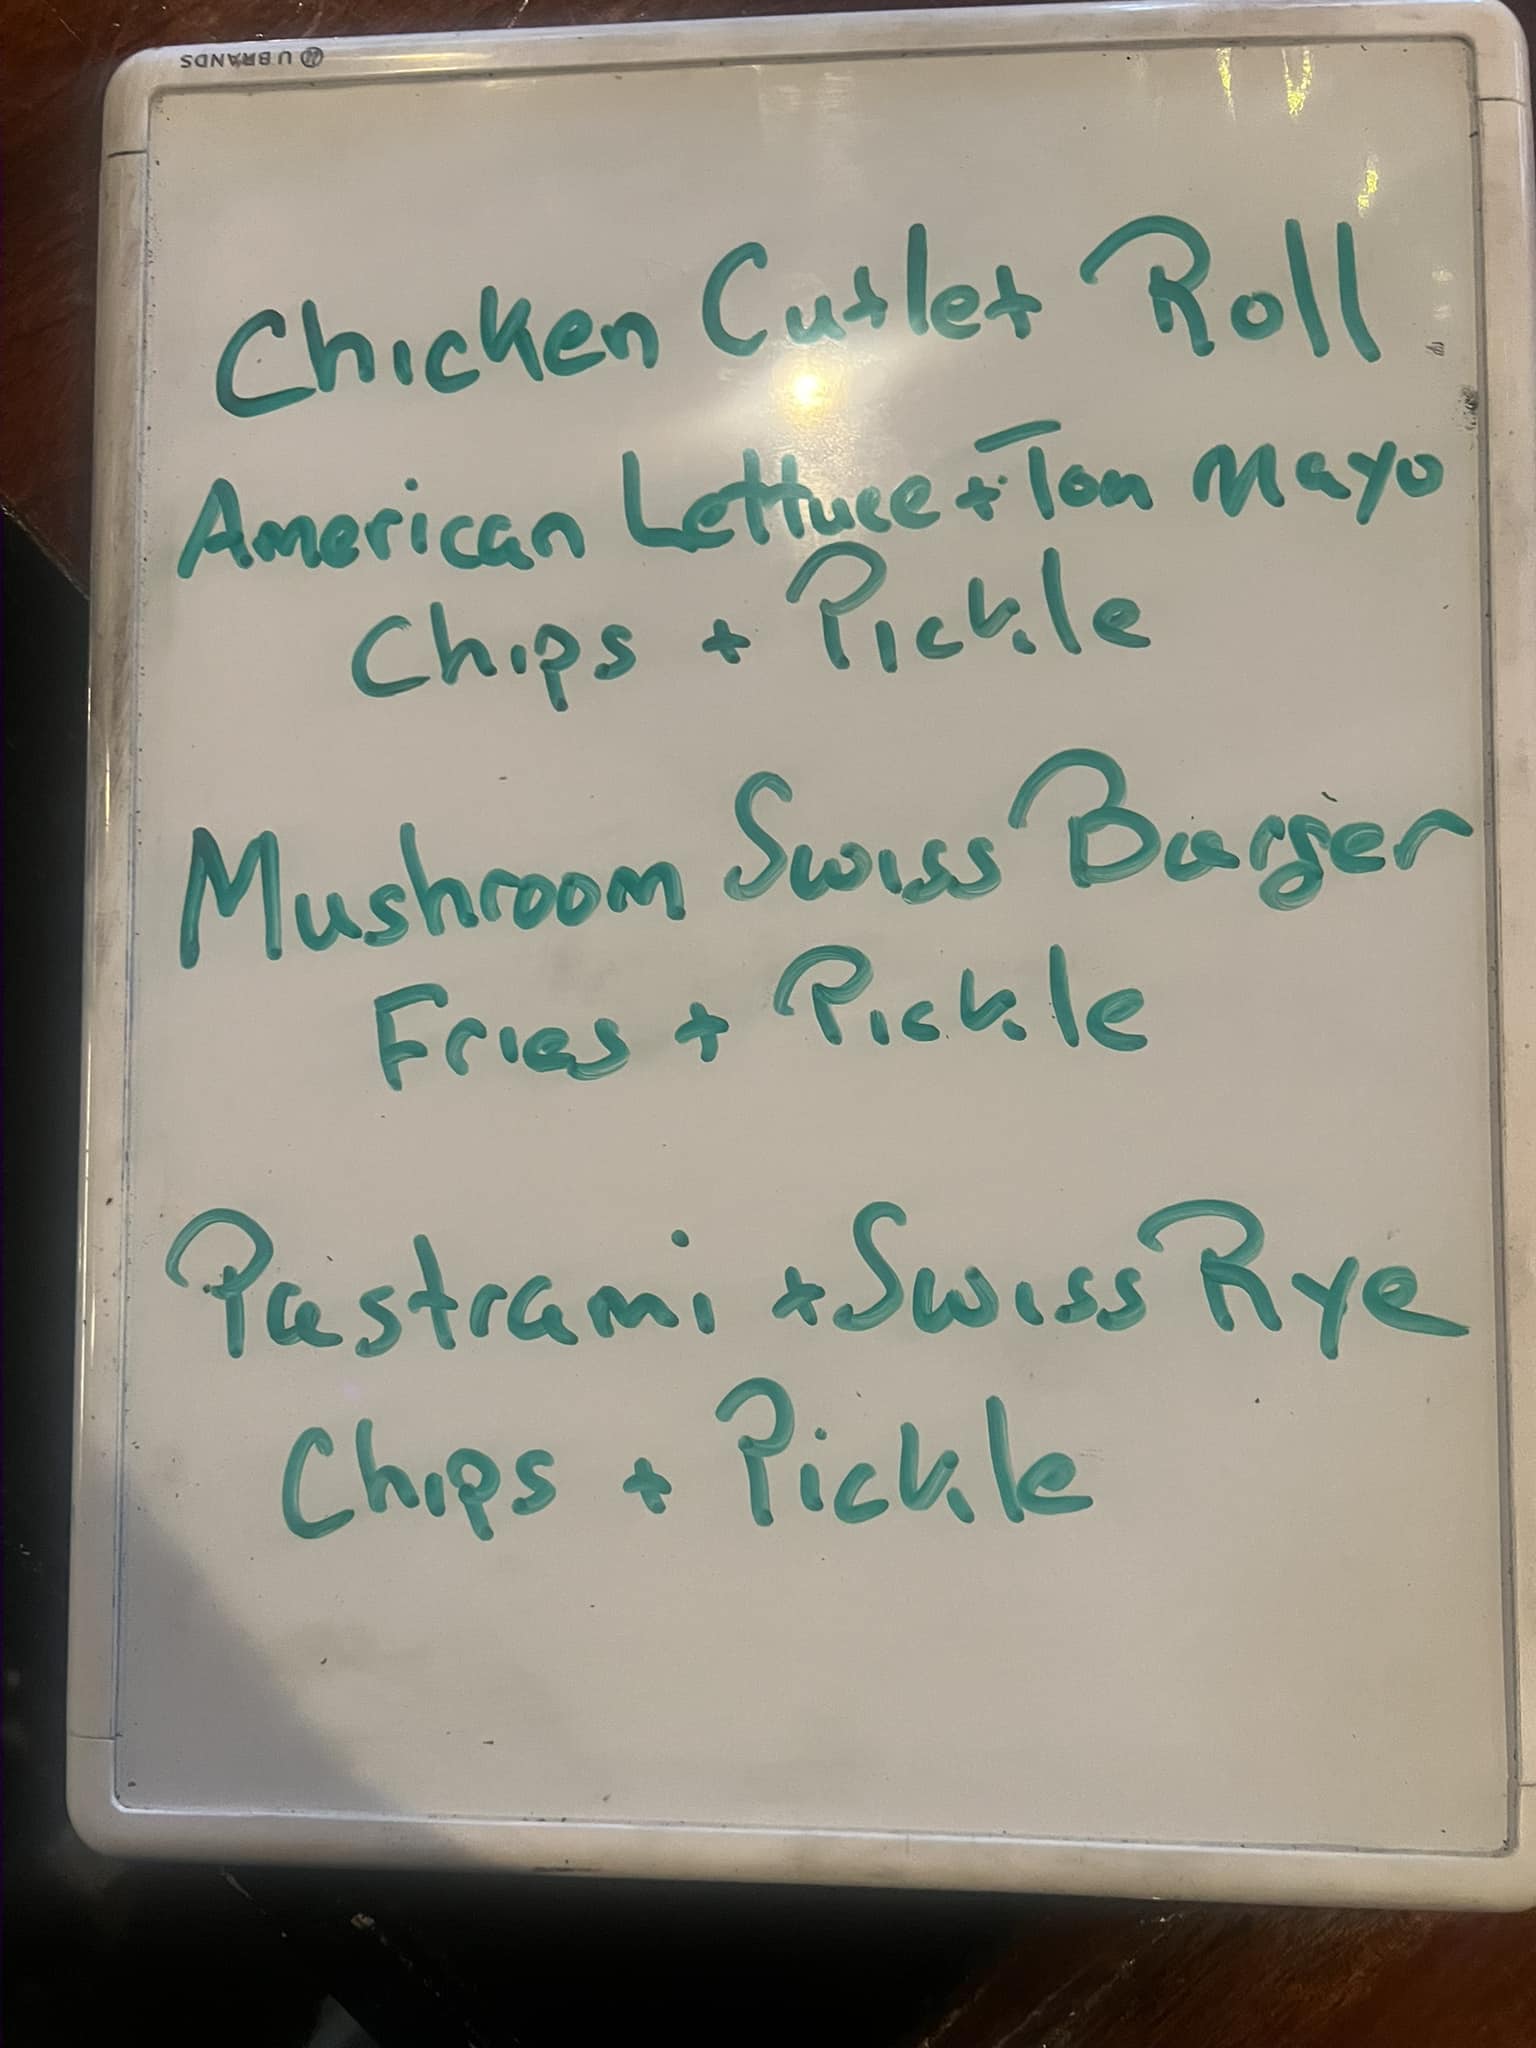 U BRANDS
Chicken Cutlet Roll
American Lettuce + Tom Mayo
Chips + Pickle
Mushroom Swiss Burger
Fries + Pickle
Pastrami + Swiss Rye
Chips + Pickle